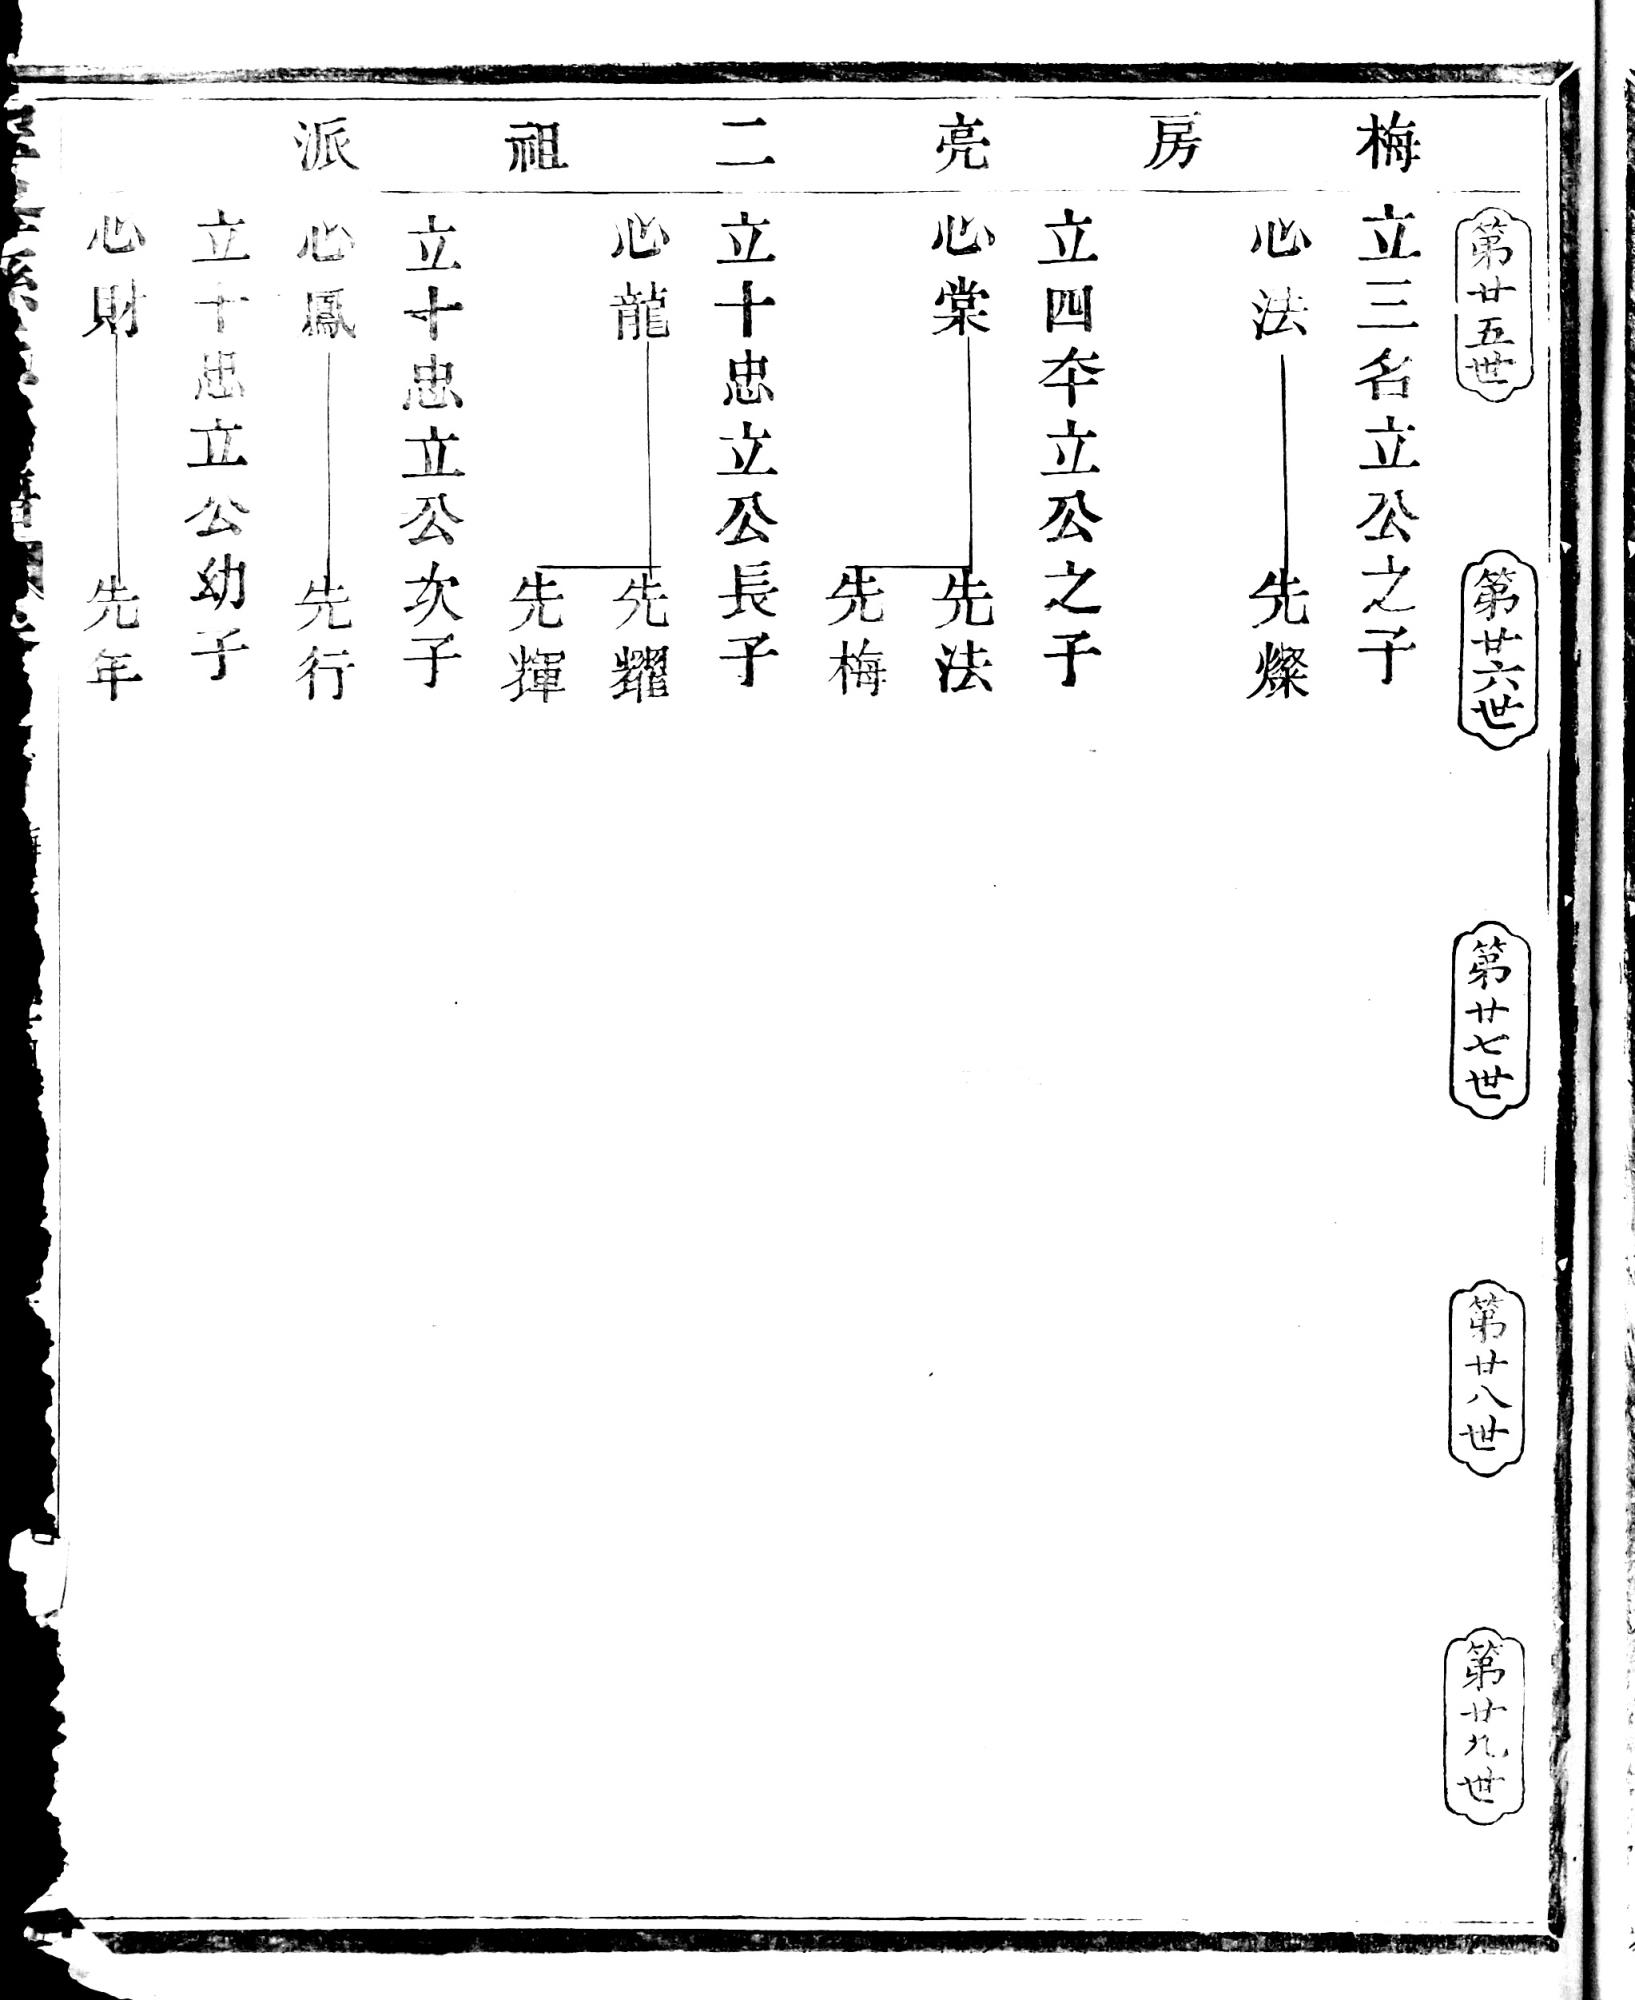 梅房亮二祖派
第廿五世
第廿六世
第廿七世
第廿八世
第廿九世
立三名立公之子
心法
先燦
立四夲立公之子
心棠
先法
先梅
立十忠立公長子
心龍
先耀
先輝
立十忠立公次子
心鳳
先行
立十忠立公幼子
心財
先年